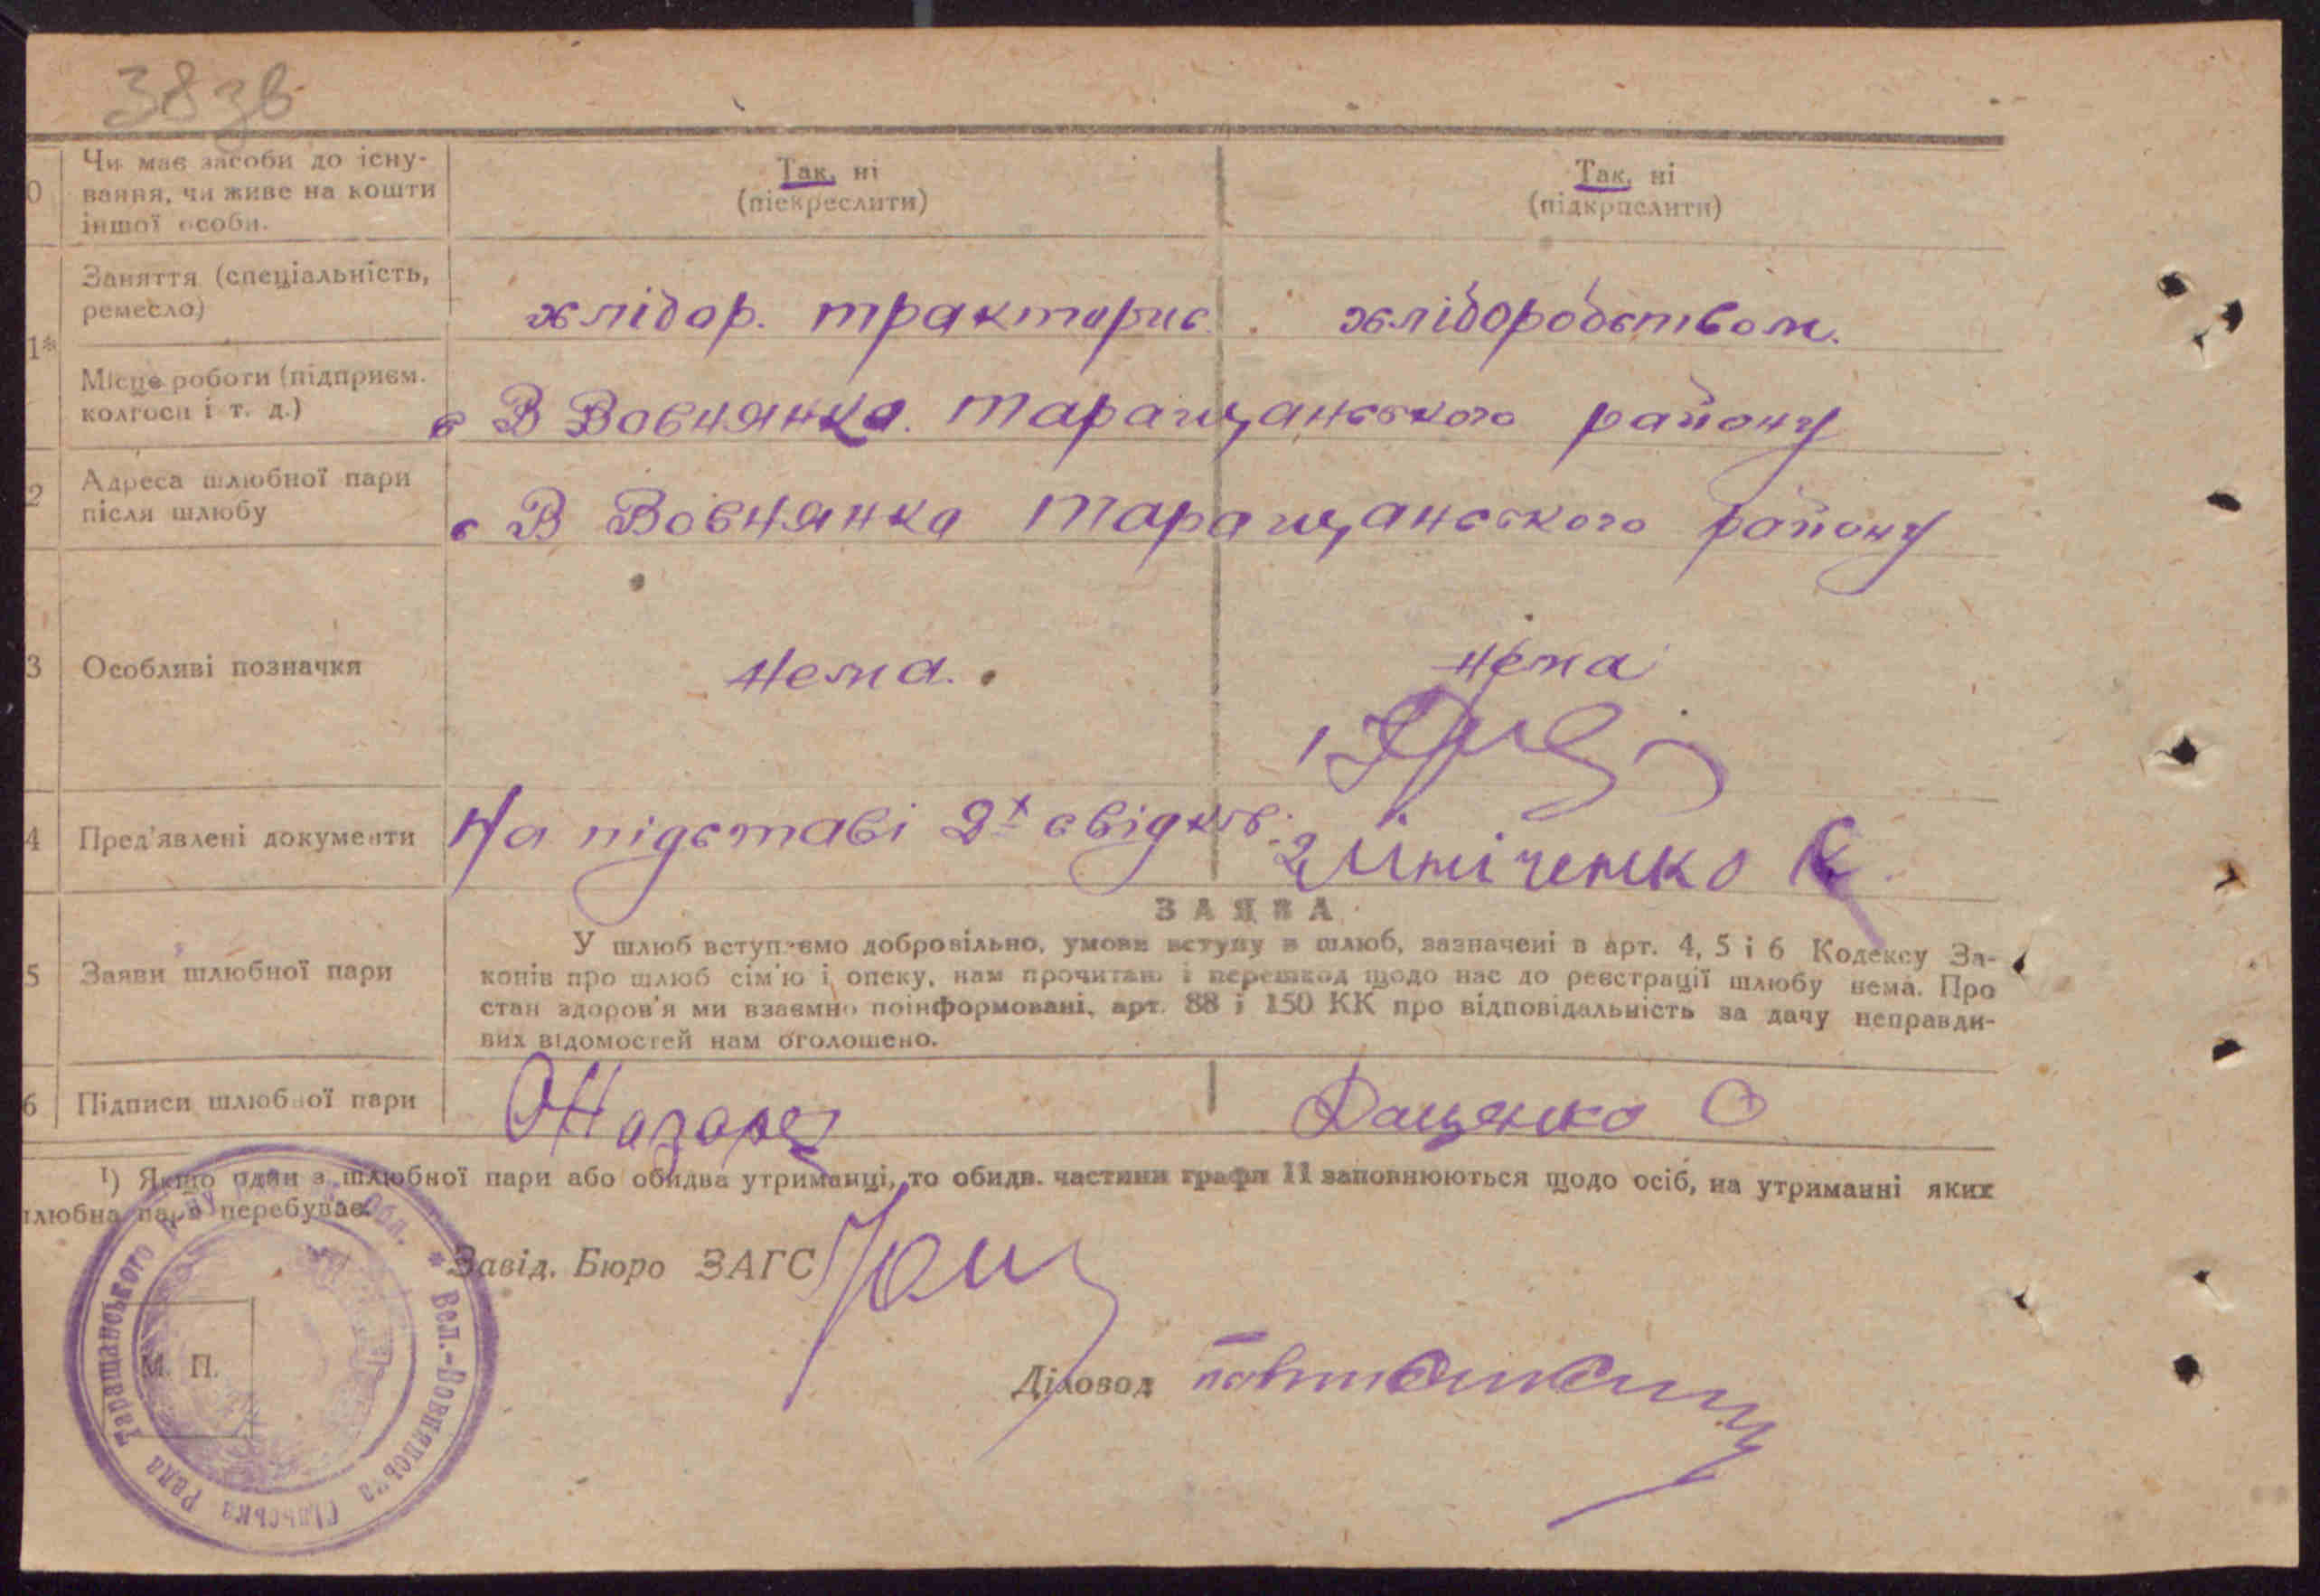 38 зв
0 Чи має засоби до існу-
вання, чи живе на кошти
іншої особи.
Так, ні
(піекреслити)
Так, ні
(підкрислити)
1*
Заняття (спеціальність,
ремесло)
хлібор. тракторис.
хліборобством.
Місце роботи (підприєм.
колгосп і т. д.)
с В Вовнянка. Таращанського району
2 Адреса шлюбної пари
після шлюбу
с В Вовнянка Таращанського району
3 Особливі позначки
нема.
нема
1
4 Пред'явлені документи
На підставі 2х свідків:
2
5 Заяви шлюбної пари
ЗАЯВА
У шлюб вступаємо добровільно, умови вступу в шлюб, зазначені в арт. 4, 5 і 6 Кодексу За-
конів про шлюб сім'ю і опеку, нам прочитані і перешкод щодо нас до реєстрації шлюбу нема. Про
стан здоров'я ми взаємно поінформовані, арт. 88 і 150 КК про відповідальність за дачу неправди-
вих відомостей нам оголошено.
6 Підписи шлюбної пари
Даценко О
1) Якщо один з шлюбної пари або обидва утриманці, то обидв. частини графи 11 заповнюються щодо осіб, на утриманні яких
шлюбна пара перебуває.
Завід. Бюро ЗАГС
М. П.
Діловод
Вел.-Вовнянська Сільська Рада Таращанського